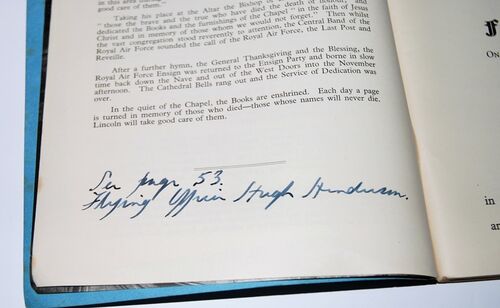 in this area during
good care of them."
Taking his place at the Altar the Bishop of
" those the brave and the true who have died the death of honour," and
dedicated the Books and the furnishings of the Chapel " in the faith of Jesus
Christ and in memory of those whom we would not forget." Then whilst
the vast congregation stood reverently to attention, the Central Band of the
Royal Air Force sounded the call of the Royal Air Force, the Last Post and
Reveille.
After a further hymn, the General Thanksgiving and the Blessing, the
Royal Air Force Ensign was returned to the Ensign Party and borne in slow
time back down the Nave and out of the West Doors into the November
afternoon. The Cathedral Bells rang out and the Service of Dedication was
over.
In the quiet of the Chapel, the Books are enshrined. Each day a page
is turned in memory of those who died—those whose names will never die.
Lincoln will take good care of them.
See page 53.
Flying Officer Hugh Henderson.
F
ON
in
an